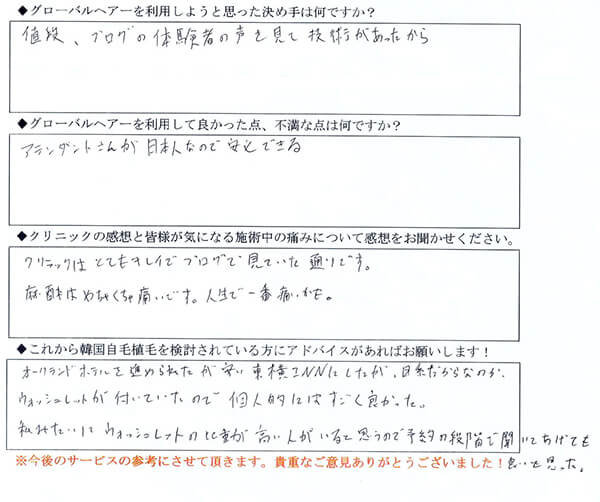 ◆グローバルヘアーを利用しようと思った決め手は何ですか？
値段、ブログの体験者の声を見て技術があったから
◆グローバルヘアーを利用して良かった点、不満な点は何ですか？
アテンダントさんが日本人なので安心できる
◆クリニックの感想と皆様が気になる施術中の痛みについて感想をお聞かせください。
クリニックはとてもキレイでブログで見ていた通りです。
麻酔はめちゃくちゃ痛いです。人生で一番痛いかも。
◆これから韓国自毛植毛を検討されている方にアドバイスがあればお願いします！
オークランドホテルを進められたが安い東横INNにしたが、日系だからなのか、
ウォッシュレットが付いていたので個人的にはすごく良かった。
私みたいにウォッシュレットの比重が高い人がいると思うので予約の段階で聞いてあげても
良いと思った。
※今後のサービスの参考にさせて頂きます。貴重なご意見ありがとうございました！